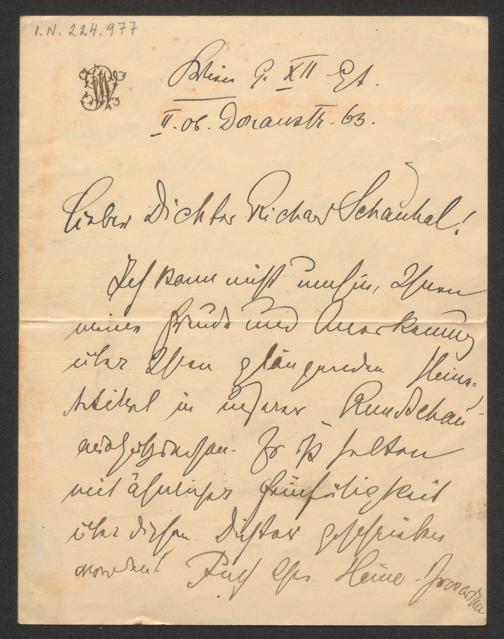 I.N. 224.977
Wien 9. XII 97.
II. ob. Donaustr. 63.
Lieber Dichter Richard Schaukal!
Ich kann nicht umhin, Ihnen
meine Freude und Anerkennung
über Ihren glänzenden Heine-
Artikel in unserer Rundschau
auszusprechen. Es ist selten
mit ähnlicher Feinfühligkeit
über diesen Dichter geschrieben
worden! Auch Heine